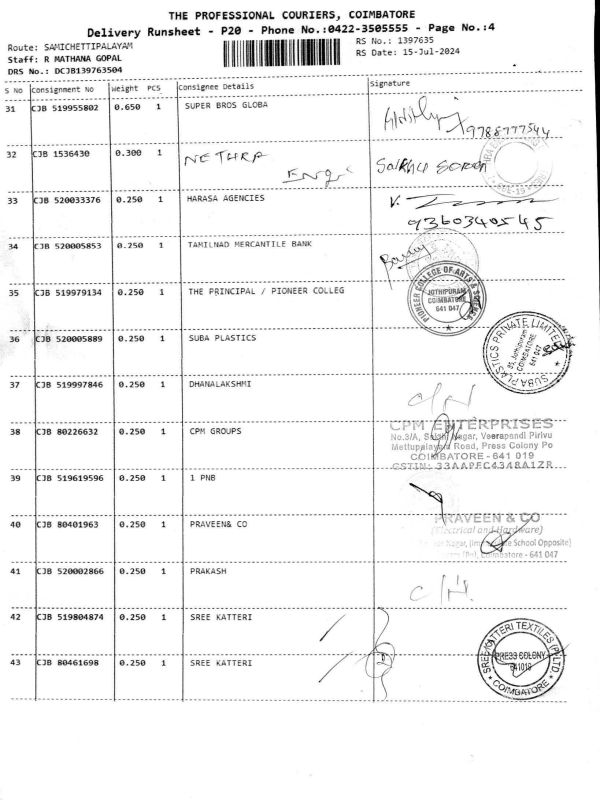 THE PROFESSIONAL COURIERS, COIMBATORE
Delivery Runsheet - P20 - Phone No.:0422-3505555 - Page No.:4
Route: SAMICHETTIPALAYAM
RS No.: 1397635
Staff: R MATHANA GOPAL
RS Date: 15-Jul-2024
DRS No.: DCJB139763504
S No Consignment No Weight PCS Consignee Details Signature
31 CJB 519955802 0.650 1 SUPER BROS GLOBA
9788777544
32 CJB 1536430 0.300 1 NETHRA
Engi
33 CJB 520033376 0.250 1 HARASA AGENCIES V.
9360340545
34 CJB 520005853 0.250 1 TAMILNAD MERCANTILE BANK
35 CJB 519979134 0.250 1 THE PRINCIPAL / PIONEER COLLEG
PIONEER COLLEGE OF ARTS & SCIENCE
JOTHIPURAM
COIMBATORE
641 047
36 CJB 520005889 0.250 1 SUBA PLASTICS
SUBA PLASTICS PRIVATE LIMITED
85, Jothipuram
COIMBATORE
641 047
37 CJB 519997846 0.250 1 DHANALAKSHMI
C/H
38 CJB 80226632 0.250 1 CPM GROUPS
CPM ENTERPRISES
No.3/A, Nagar, Veerapandi Pirivu
Mettupalayam Road, Press Colony Po
COIMBATORE - 641 019
GSTIN: 33AAPFC4348A1ZR
39 CJB 519619596 0.250 1 1 PNB
40 CJB 80401963 0.250 1 PRAVEEN& CO
PRAVEEN & CO
(Electrical and Hardware)
Nagar, School Opposite)
Coimbatore - 641 047
41 CJB 520002866 0.250 1 PRAKASH
C/H.
42 CJB 519804874 0.250 1 SREE KATTERI
43 CJB 80461698 0.250 1 SREE KATTERI
SREE KATTERI TEXTILES (P) LTD
PRESS COLONY
641019
COIMBATORE